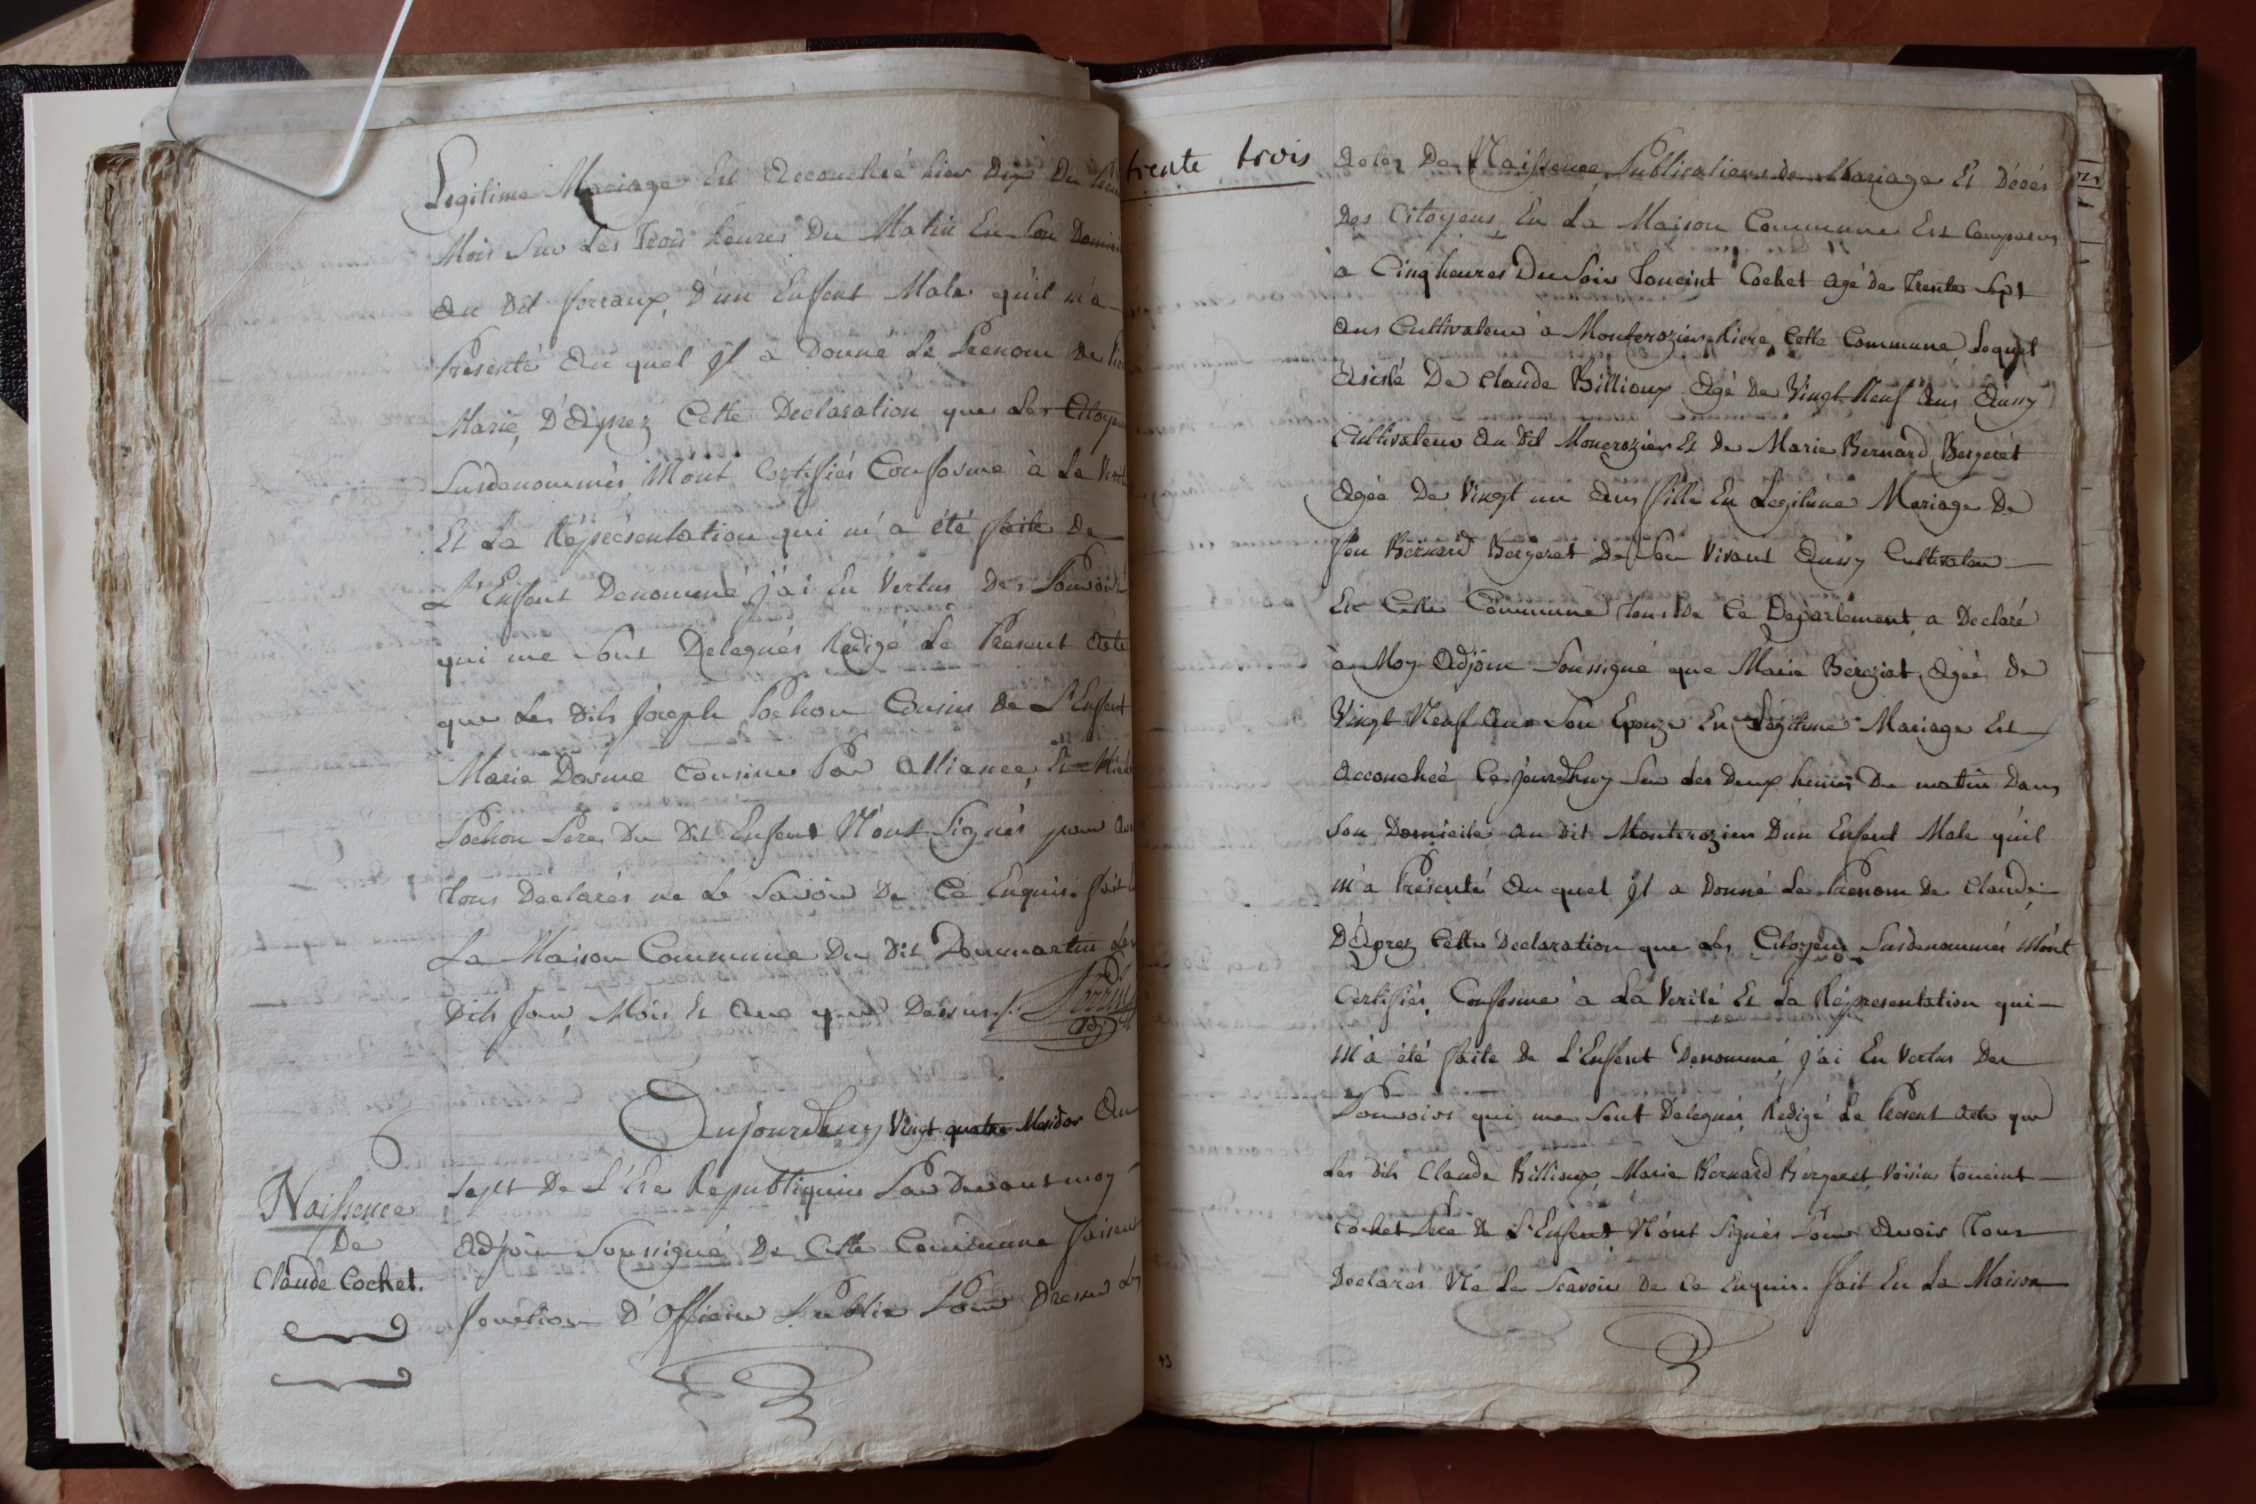 Legitime Mariage Est Accouchée hier Dix Du
Mois Sur Les Trois heures Du Matin En Son
Au Dit forraux, D'un Enfent Male qu'il m'a
Présenté Au quel Il a Donné Le Prenom De
Marie, D'Aprez Cette Declaration que Les
Susdenommés M'ont Certifiés Conforme à La
Et La Répresentation qui m'a été faite De
L'Enfent Denommé, j'ai En Vertus Des Pouvoirs
qui me Sont Delegués Redigé Le Present Acte
que Les Dits Joseph Pochon Cousins De L'Enfent
Marie Cousine Par Alliance,
Pochon Pere Du Dit Enfent N'ont Signés pour
Tous Déclarés ne Le Savoir De Ce Enquis. fait
La Maison Commune Du Dit Dommartin Les
Dits Jour, Mois Et An que Dessus
Aujourdhuy Vingt quatre Mesidor An
Sept De L'Ere Republiquine Par Devant moy
Adjoin Soussigné De Cette Commune faisant
fonction D'Officier Public Pour Dresser Les
Naissence
De
Claude Cochet.
trente trois
Actes De Naissence, Publications de Mariage Et Décés
Des Citoyens En La Maison Commune Est Comparus
à Cinq heures Du Soir Toucint Cochet Agé de Trente Sept
Ans Cultivateur à Monterozier, Cette Commune, Lequel
Asisté De Claude Billioux Agé De Vingt Neuf Ans Aussy
Cultivateur Au Dit Moncrozier Et De Marie Bernard Bergeret
Agée De Vingt un Ans fille En Legitime Mariage De
feu Bernard Bergeret De Son Vivant Aussy Cultivateur
En Cette Commune Tous De Ce Departement, a Declaré
à Moy Adjoin Soussigné que Marie Bereziat, Agée De
Vingt Neuf Ans Son Epouze En Légitime Mariage Est
Accouchée Ce jourdhuy Sur Les Deux heures Du matin Dans
Son Domicile au dit Monterozier D'un Enfent Male qu'il
m'a Présenté Au quel Il a Donné Le Prenom De Claude
D'Aprez Cette Declaration que Les Citoyens Susdenommés M'ont
Certifiés, Conforme à La Verité Et La Répresentation qui
M'a été faite De L'Enfent Denommé, j'ai En Vertus Des
Pouvoirs qui me Sont Délegués, Redigé Le Present Acte que
Les Dits Claude Billioux, Marie Bernard Bergeret, Voisins toucint
Cochet Pere De L'Enfent N'ont Signés Pour Avoir Tous
Declarés Ne Le Scavoir De Ce Enquis. fait En La Maison